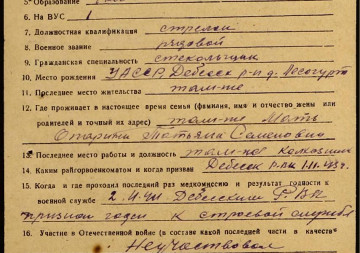 5. Образование
6. На ВУС 1
7. Должностная квалификация стрелок
8. Военное звание рядовой
9. Гражданская специальность стекольщик
10. Место рождения УАССР Дебесск р-н д. Лесагурт
11. Последнее место жительства там-же
12. Где проживает в настоящее время семья (фамилия, имя и отчество жены или
родителей и точный их адрес) там-же Мать
Татьяна Семеновна
13. Последнее место работы и должность там-же Колхозник
14. Каким райгорвоенкоматом и когда призван Дебесск РВК
15. Когда и где проходил последний раз медкомиссию и результат годности к
военной службе Дебесским РВК
признан годен к строевой службе
16. Участие в Отечественной войне (в составе какой последней части в качестве
Неучаствовал